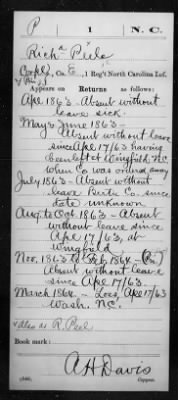 P 1 N.C.
Rich^d Peele
Corp'l, Co. E, 1 Reg't North Carolina Inf.
Appears on
Returns as follows:
Apl 1863 - Absent without
leave sick.
May & June 1863 -
Absent without leave
since Apl 17/63 having
been left at Wingfield N.C.
when Co. was ordered away
July 1863 - Absent without
leave Bertie Co. since
date unknown
Aug. to Oct. 1863 - Absent
without leave since
Apl 17/63, at
Wingfield
Nov. 1863 to Feb. 1864 -
Absent without leave
since Apl 17/63.
March 1864 - Loss, Apl 17/63
Wash. N.C.
also as R. Peel
Book mark:
A H Davis
(546)
Copyist.